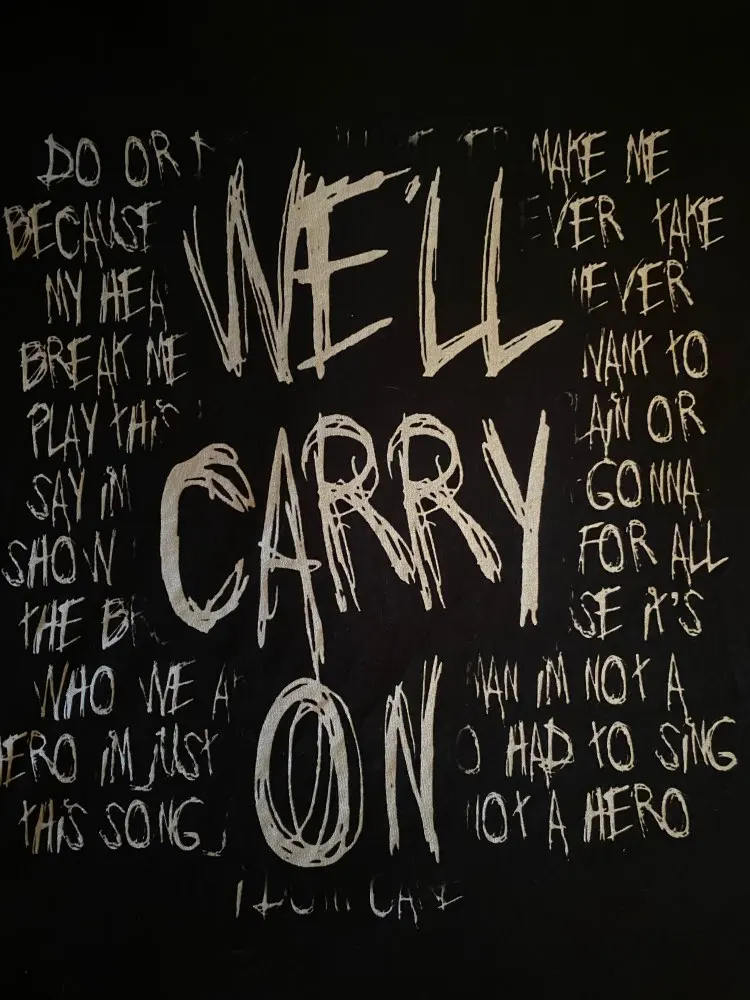 WE'LL
CARRY
ON
DO OR MAKE ME
BECAUSE EVER TAKE
MY HEA NEVER
BREAK ME WANT TO
PLAY THIS AIN OR
SAY iM GONNA
SHOW FOR ALL
THE B SE iT'S
WHO WE A MAN iM NOT A
HERO iM JUST O HAD TO SiNG
THiS SONG NOT A HERO
I DON'T CARE